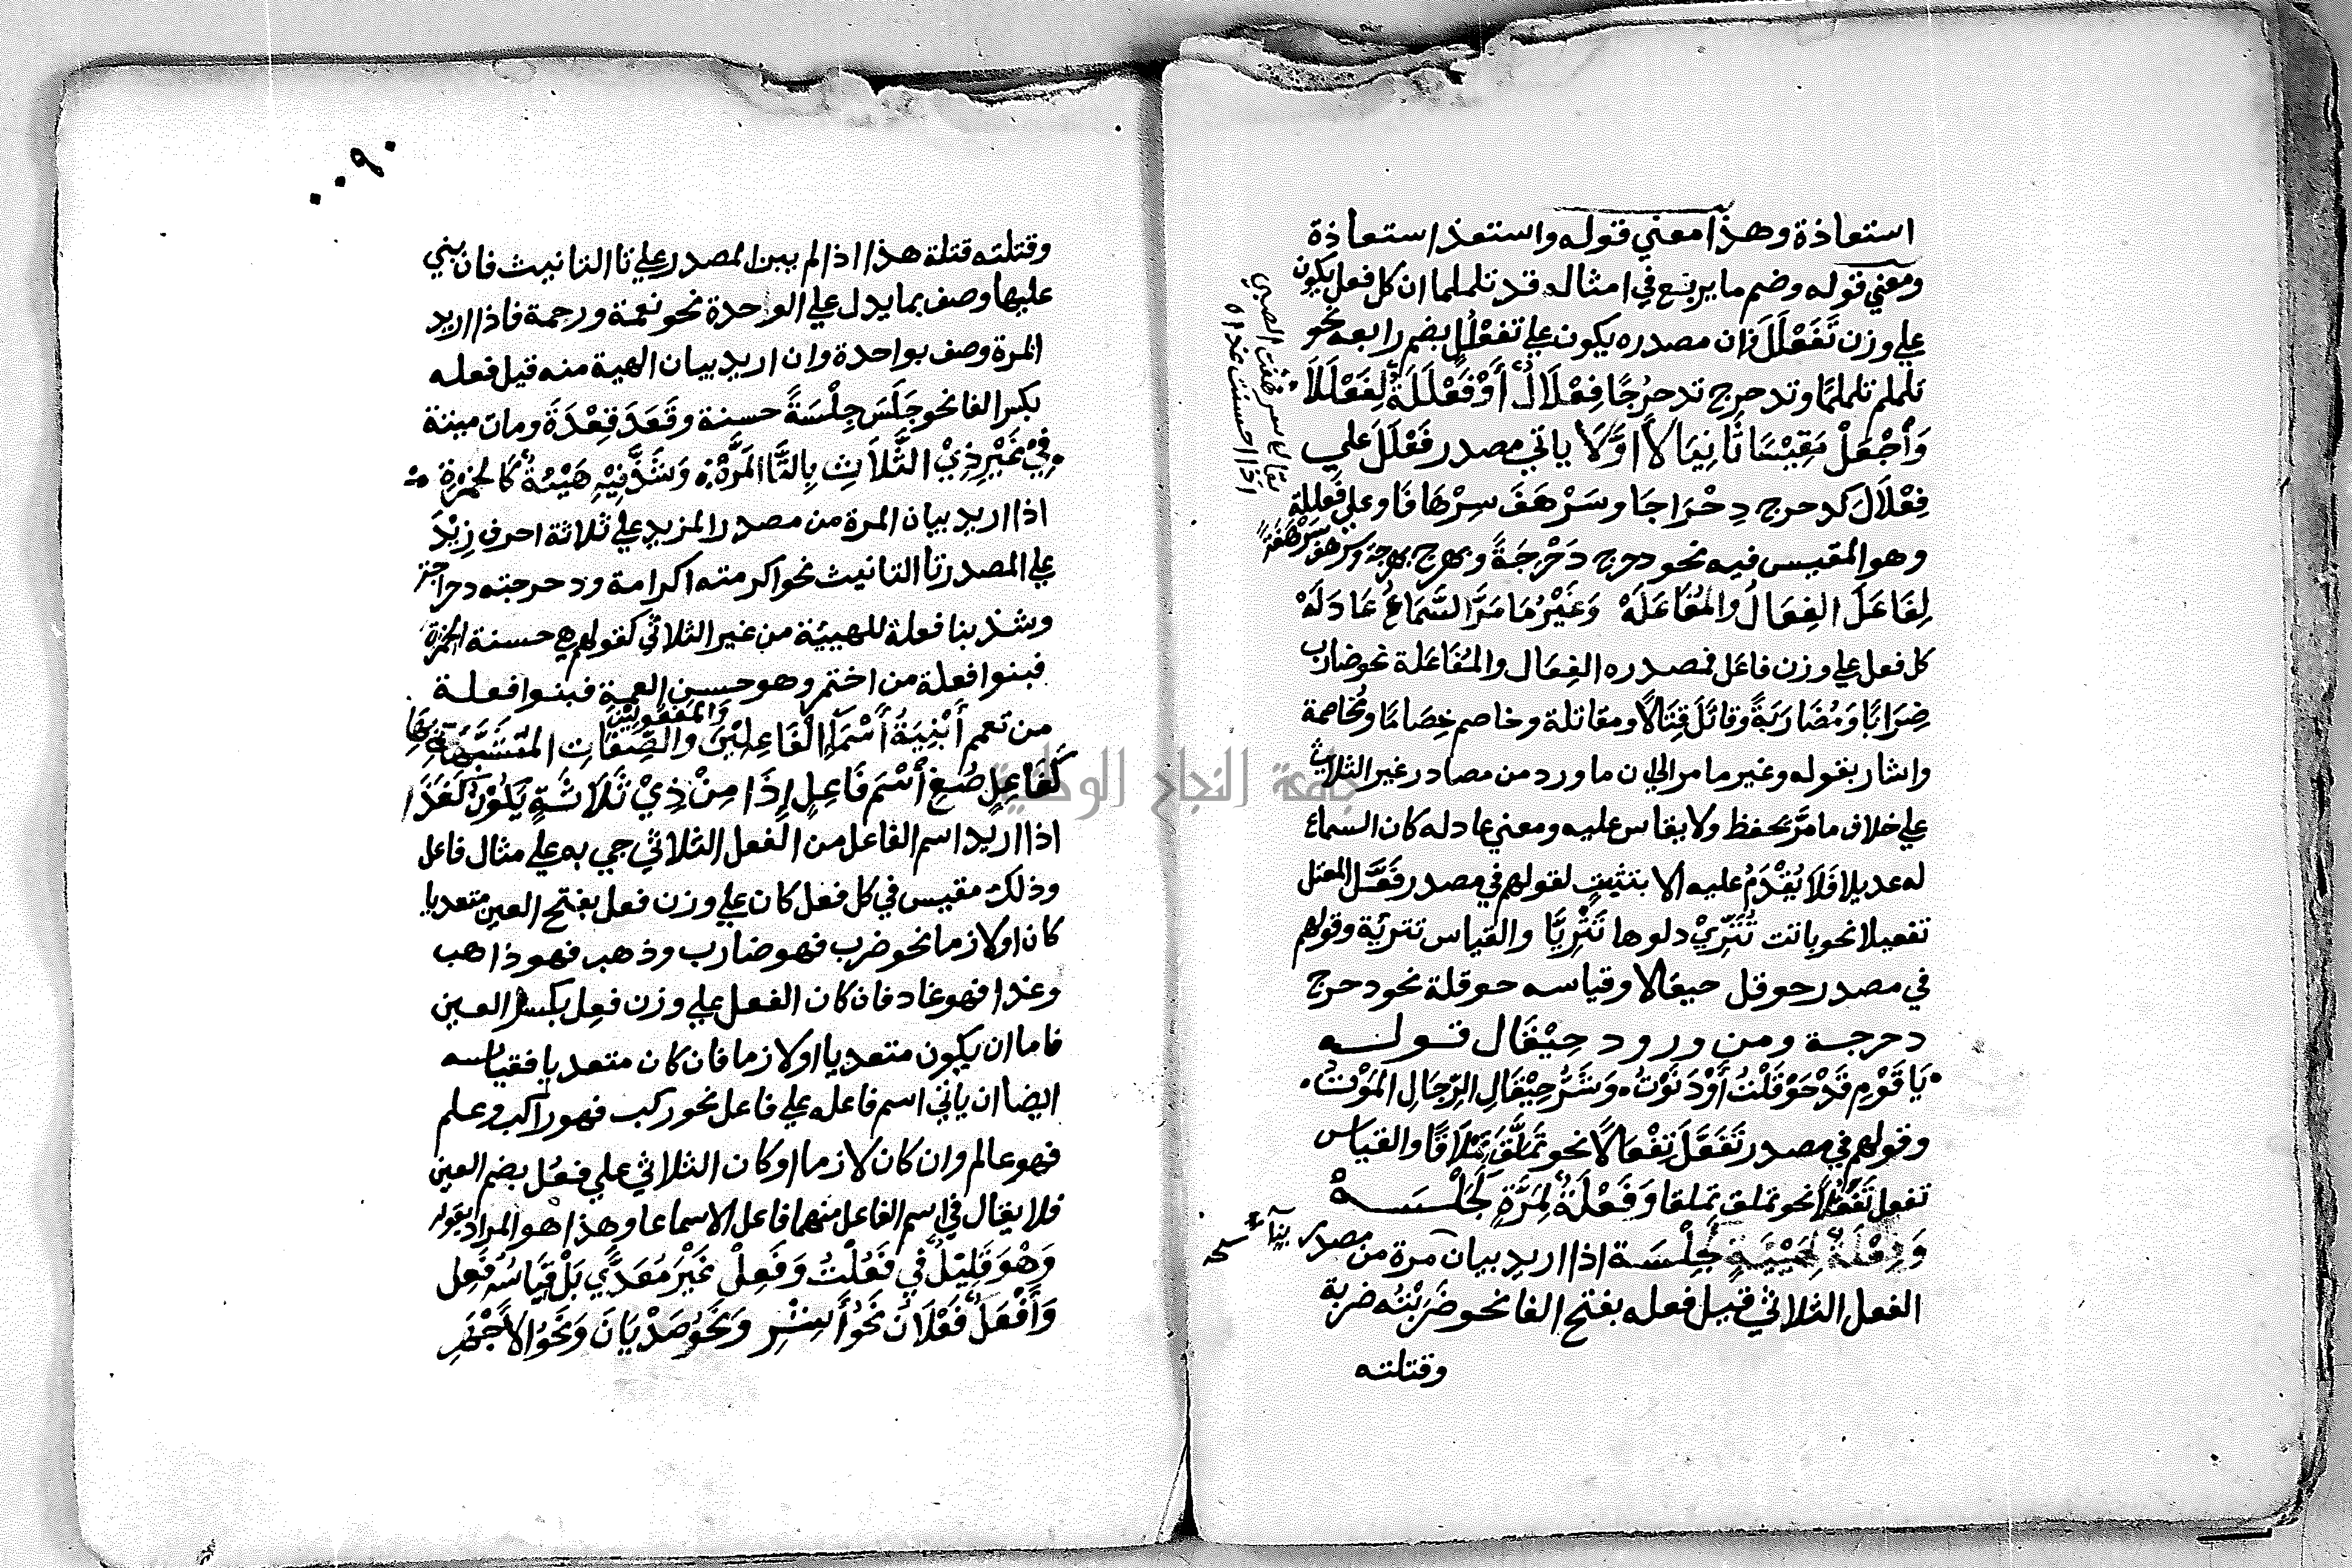 استعاذة وهذا معني قوله واستعذ استعاذة
ومعني قوله وضم ما يربع في امثال قد تلملما ان كل فعل يكون
علي وزن تَفَعْلَلَ فان مصدره يكون علي تفعْلُل بضم رابعه نحو
تلملم تلملمًا وتدحرج تدحرُجًا فِعْلَالٌ أَوْ فَعْلَلَةٌ لِفَعْلَلَا
وَاجْعَلْ مَقِيْسًا ثَانِيًا لَا اوَّلَا ياتي مصدر فَعْلَلَ علي
فِعْلَالَ كدحرج دِحْرَاجَا وسَرْهَفَ سِرْهَافَا وعلي فَعللة
وهو المقيس فيه نحو دحرج دَحْرَجَةً وبهرج بهرجة وسرهف سَرْهَفَةً
يقال سرهفت الصبي
اذا احسنت غداه
لِفَاعَلَ الفِعَالُ والمُفَاعَلَهْ وَغَيْرُ مَا مَرَّ السَّمَاعُ عَادَلَهْ
كل فعل علي وزن فاعل فمصدره الفِعَال والمُفَاعَلة نحو ضارب
ضِرَابًا وَمُضَارَبَةً وقاتَلَ قِتَالًا ومقاتلة وخاصم خِصَامًا ومُخاصمة
واشار بقوله وغير ما مر الي ان ما ورد من مصادر غير الثلاثي
علي خلاف ما مَرَّ يحفظ ولا يقاس عليه ومعني عادله كان السماع
له عديلا فَلَا يُقْدَمُ عليه الا بتثبيت لقولهم في مصدر فَعَّل المعتل
تفعيلا نحو باتت تُنَزِّيْ دلوها تَنْزِيًّا والقياس تنزية وقولهم
في مصدر حوقل حيقالا وقياسه حوقلة نحو دحرج
دحرجة ومن ورود حِيْقَال قوله
يَا قَوْمِ قَدْ حَوْقَلْتُ أَوْ دَنَوْتُ وَشَرُّ حِيْقَالِ الرِّجَالِ المَوْتُ
وقولهم في مصدر تَفَعَّلَ تِفْعَالًا نحو تَمَلَّقَ تِمْلَاقًا والقياس
تفعل تَفَعُّلًا نحو تملق تملقا وَفَعْلَةٌ لِمَرَّةٍ كَجَلْسَهْ
وَفِعْلَةٌ لِهَيْئَةٍ كَجِلْسَة اذا اريد بيان مرة من مصدر
الفعل الثلاثي قيل فعله بفتح الفا نحو ضَرَبْتُه ضربة
وقتلته
٠٠٩٠
وقتلته قتلة هذا اذا لم يبن المصدر علي تا التانيث فان بني
عليها وصف بما يدل علي الوحدة نحو نعمة ورحمة فاذا اريد
المرة وصف بواحدة وان اريد بيان الهية منه قيل فعله
بكسر الفا نحو جَلَسَ جِلْسَةً حسنة وقَعَدَ قِعْدَةً ومات ميتة
فِيْ غَيْرِ ذِيْ الثَّلَاثِ بِالتَّا المَرَّهْ وَشَذَّ فِيْهِ هَيْئَةٌ كَالخِمْرَةِ
اذا اريد بيان المرة من مصدر المزيد علي ثلاثة احرف زِيْدَ
علي المصدر تا التانيث نحو اكرمته اكرامة ودحرجته دحراجة
وشذ بنا فعلة للهيئة من غير الثلاثي كقولهم هي حسنة الخمرة
فبنوا فعلة من اختمر وهو حسن العمة فبنوا فعلة
من تعمم أَبْنِيَةُ أَسْمَاءِ الفَاعِلِيْنَ وَالمَفْعُولِيْنَ والصِّفَاتِ المُشَبَّهَةِ بِهَا
كَفَاعِلٍ صُغِ اسْمَ فَاعِلٍ إِذَا مِنْ ذِيْ ثَلَاثَةٍ يَكُوْنُ كَغَذَا
اذا اريد اسم الفاعل من الفعل الثلاثي جي به علي مثال فاعل
وذلك مقيس في كل فعل كان علي وزن فعل بفتح العين متعديا
كان او لازما نحو ضرب فهو ضارب وذهب فهو ذاهب
وغذا فهو غاد فان كان الفعل علي وزن فعِل بكسر العين
فاما ان يكون متعديا او لازما فان كان متعديا فقياسه
ايضا ان ياتي اسم فاعله علي فاعل نحو ركب فهو راكب وعلم
فهو عالم وان كان لازما او كان الثلاثي علي فعُل بضم العين
فلا يقال في اسم الفاعل منهما فاعل الا سماعا وهذا هو المراد بقوله
وَهْوَ قَلِيْلٌ فِي فَعُلْتُ وَفَعِلْ غَيْرَ مُعَدًّي بَلْ قِيَاسُهُ فَعِل
وَأَفْعَلٌ فَعْلَانُ نَحْوُ أَشِرِ وَنَحْوُ صَدْيَانَ وَنَحْوُ الأَجْهَرِ